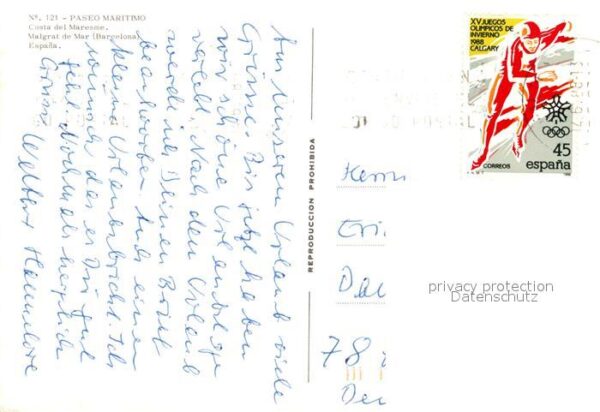 Nº. 121 - PASEO MARITIMO
Costa del Maresme.
Malgrat de Mar (Barcelona)
España.
Aus unserem Urlaub viele
Grüsse. Bis jetzt haben
wir schöne Urlaubstage
verlebt. Nach dem Urlaub
werde ich Deinen Brief
beantworten. Auch einen
kleinen Urlaubsbericht. Ich
wünsch das es Dir gut
geht. Nochmals herzliche
Grüsse
Hannelore
REPRODUCCION PROHIBIDA
XV JUEGOS
OLIMPICOS DE
INVIERNO
1988
CALGARY
45
españa
CORREOS
Herrn
78
privacy protection
Datenschutz